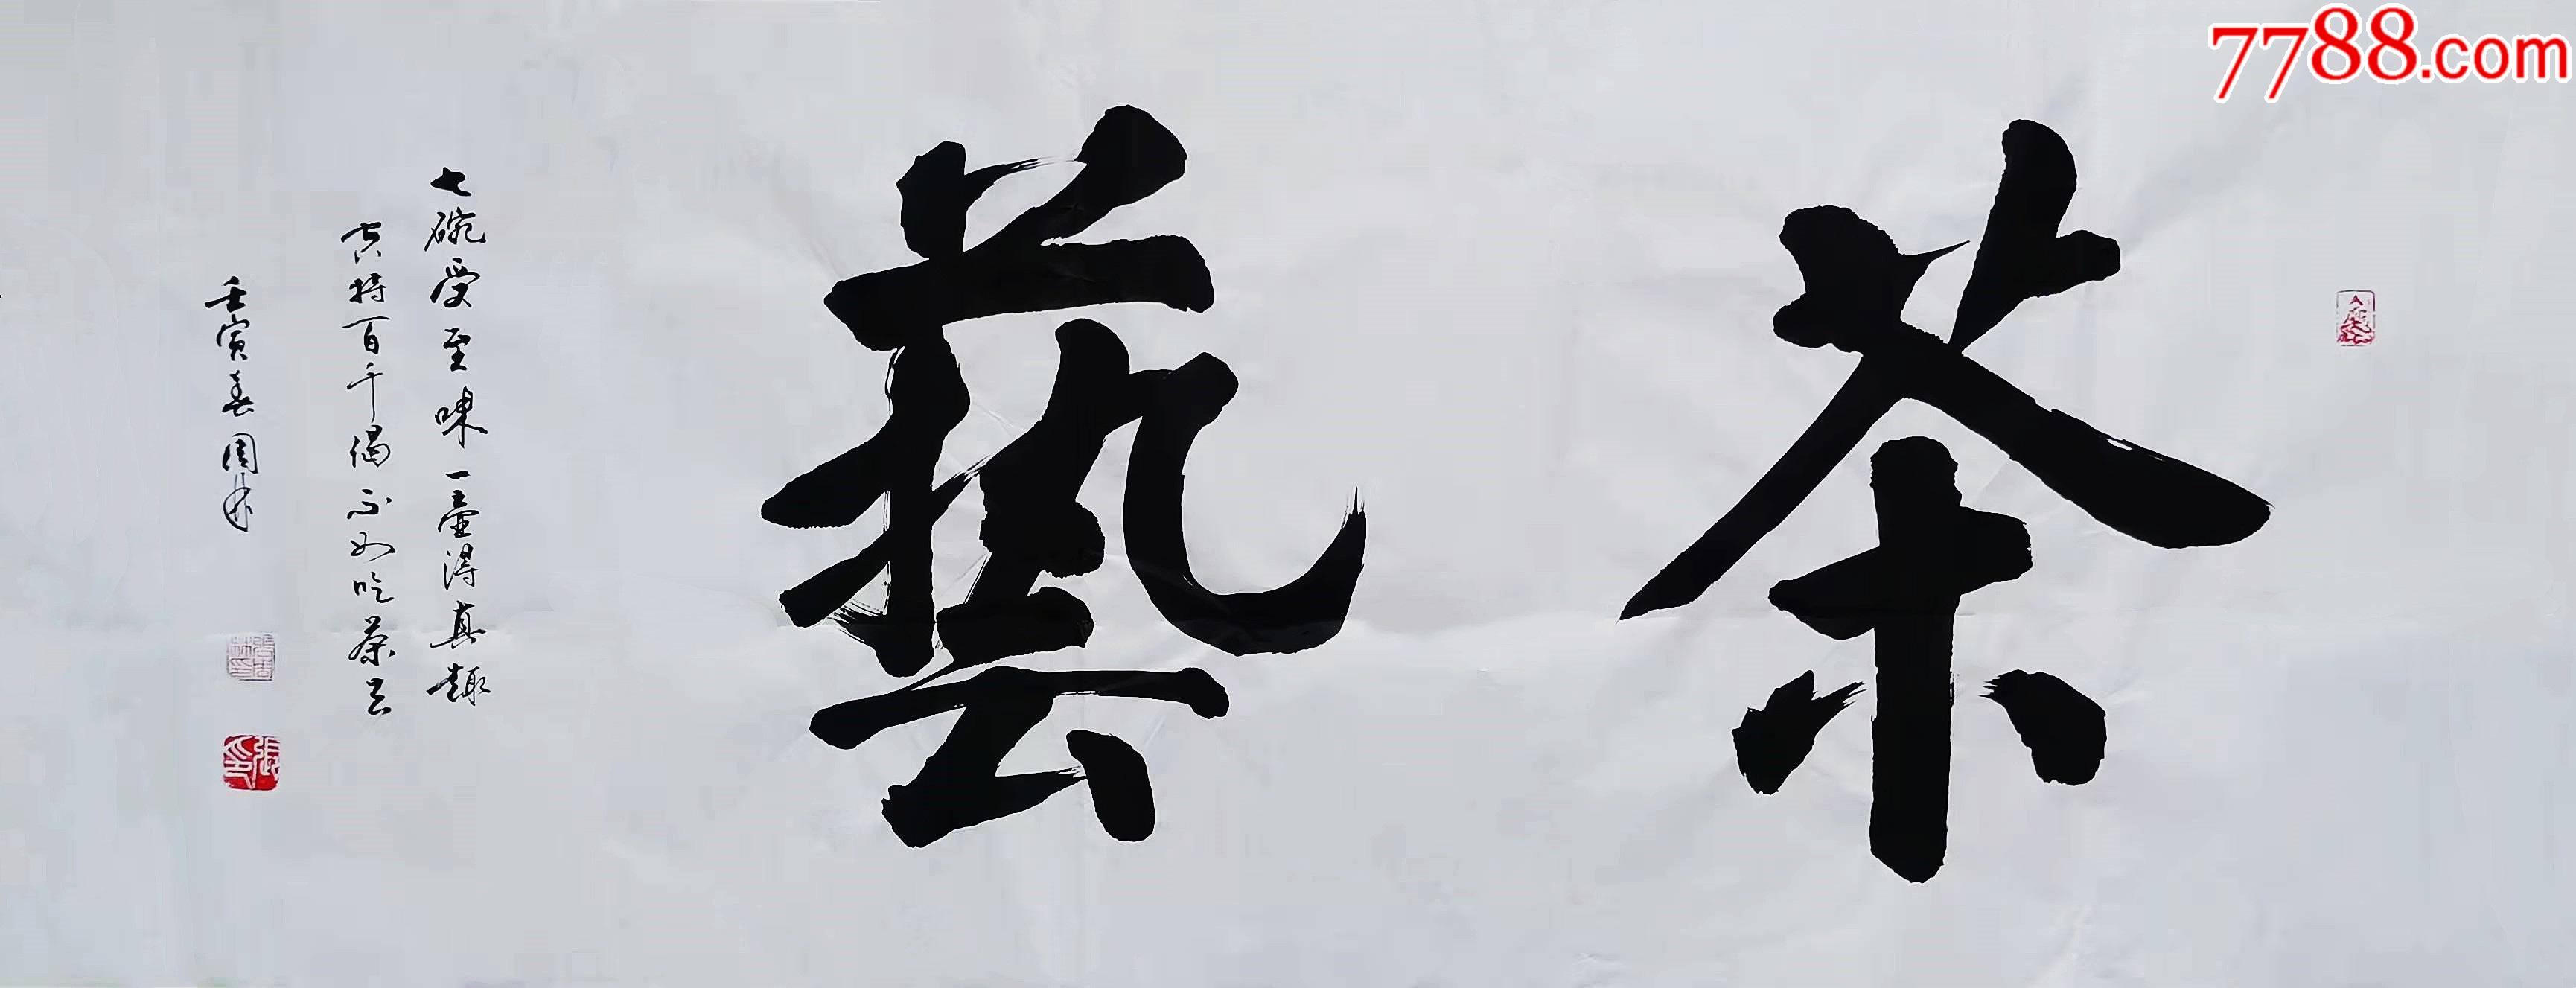 茶藝
七碗受至味一壺得真趣
空持百千偈不如吃茶去
壬寅春周林
張周林印
張印
7788.com